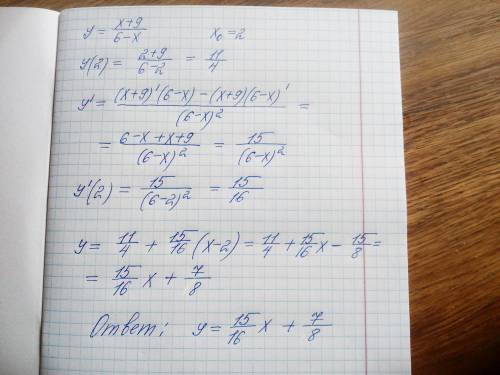 y = (x+9)/(6-x)   x₀ = 2
y(2) = (2+9)/(6-2) = 11/4
y' = ((x+9)'(6-x) - (x+9)(6-x)')/(6-x)² =
= (6-x+x+9)/(6-x)² = 15/(6-x)²
y'(2) = 15/(6-2)² = 15/16
y = 11/4 + 15/16 (x-2) = 11/4 + 15/16 x - 15/8 =
= 15/16 x + 7/8
Ответ: y = 15/16 x + 7/8